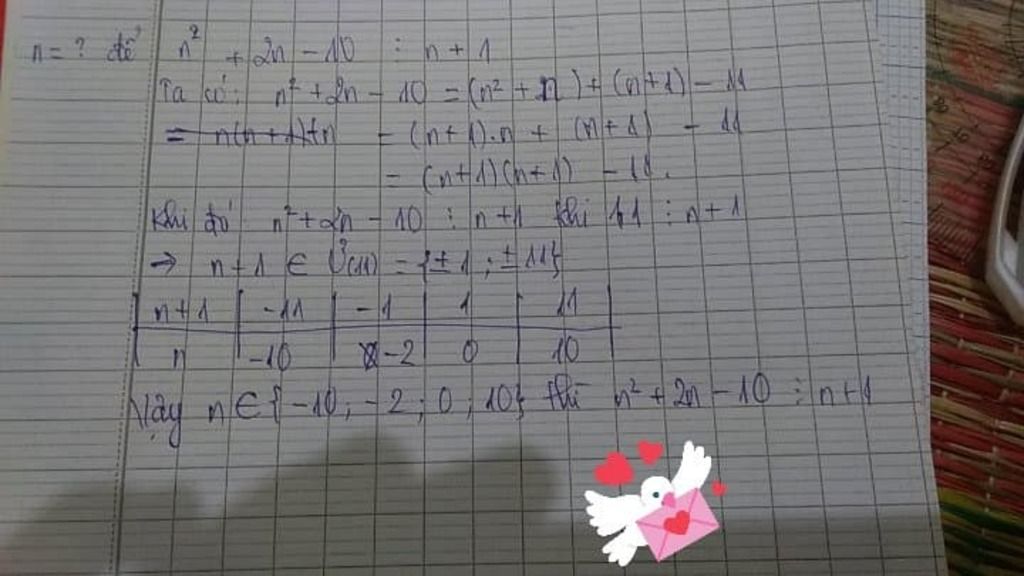 n = ? để n² + 2n - 10 ⋮ n + 1
Ta có: n² + 2n - 10 = (n² + n) + (n+1) - 11
= n(n+1)+n = (n+1).n + (n+1) - 11
= (n+1)(n+1) - 11.
Khi đó n² + 2n - 10 ⋮ n+1 khi 11 ⋮ n+1
→ n+1 ∈ Ư(11) = {±1; ±11}
n+1 | -11 | -1 | 1 | 11
n | -10 | -2 | 0 | 10
Vậy n ∈ {-10; -2; 0; 10} thì n² + 2n - 10 ⋮ n+1